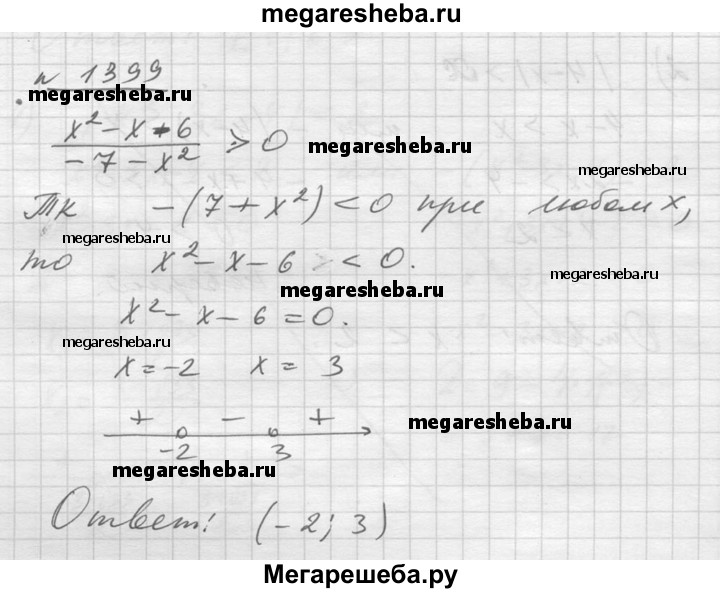 megaresheba.ru
№ 1399
megaresheba.ru
x² - x - 6
/ - 7 - x² > 0
megaresheba.ru
megaresheba.ru
Тк - (7 + x²) < 0 при любом x,
megaresheba.ru
то x² - x - 6 < 0.
megaresheba.ru
megaresheba.ru
x² - x - 6 = 0.
megaresheba.ru
x = -2 x = 3
+ - +
megaresheba.ru
-2 3
megaresheba.ru
Ответ: (-2; 3)
Мегарешеба.ру